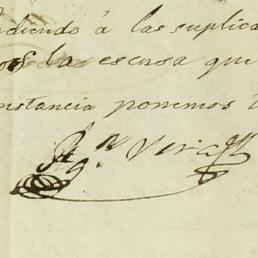 diendo á las suplica
os la escusa que
nstancia ponemos